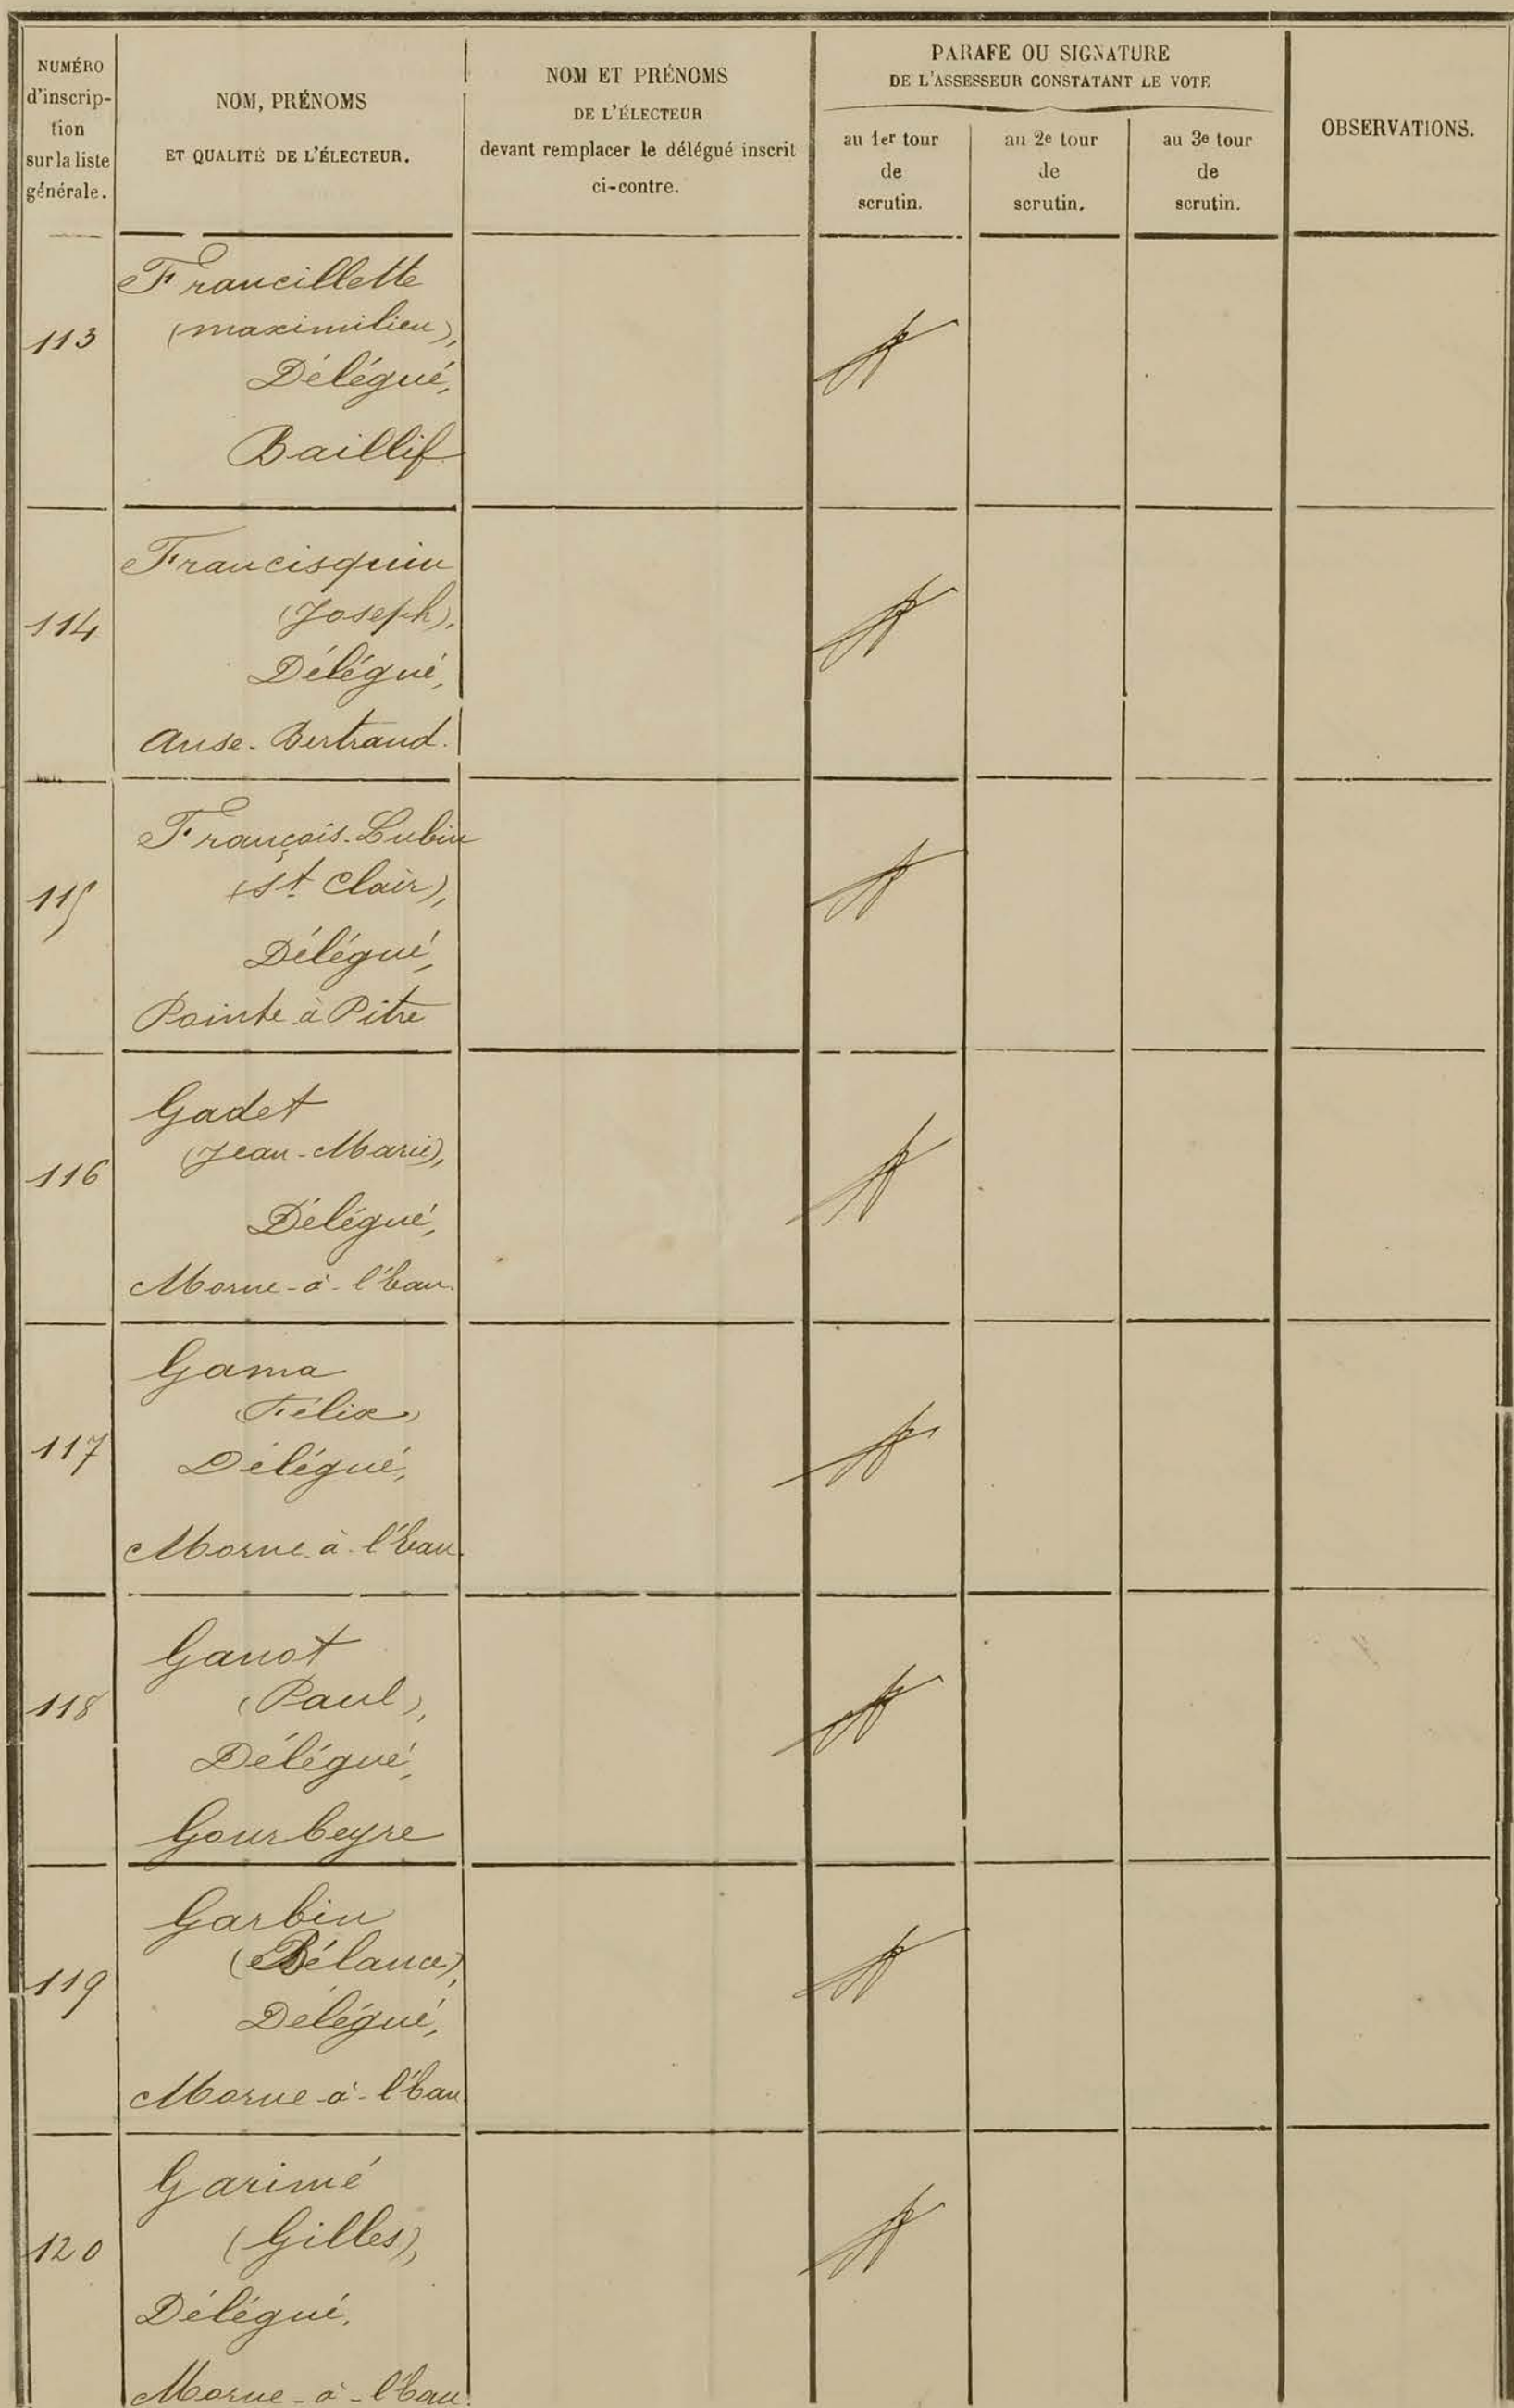 NUMÉRO
d'inscrip-
tion
sur la liste
générale.
NOM, PRÉNOMS
ET QUALITÉ DE L'ÉLECTEUR.
NOM ET PRÉNOMS
DE L'ÉLECTEUR
devant remplacer le délégué inscrit
ci-contre.
PARAFE OU SIGNATURE
DE L'ASSESSEUR CONSTATANT LE VOTE
au 1er tour
de
scrutin.
au 2e tour
de
scrutin.
au 3e tour
de
scrutin.
OBSERVATIONS.
113
Francillette
(Maximilien),
Délégué,
Baillif
114
Francisquin
(Joseph),
Délégué,
Anse-Bertrand.
115
François-Lubin
(St Clair),
Délégué,
Pointe à Pitre
116
Gadet
(Jean-Marie),
Délégué,
Morne-à-l'Eau.
117
Gama
(Félix)
Délégué,
Morne-à-l'Eau.
118
Ganot
(Paul),
Délégué,
Gourbeyre
119
Garbin
(Bélance),
Délégué,
Morne-à-l'Eau
120
Garimé
(Gilles),
Délégué,
Morne-à-l'Eau.